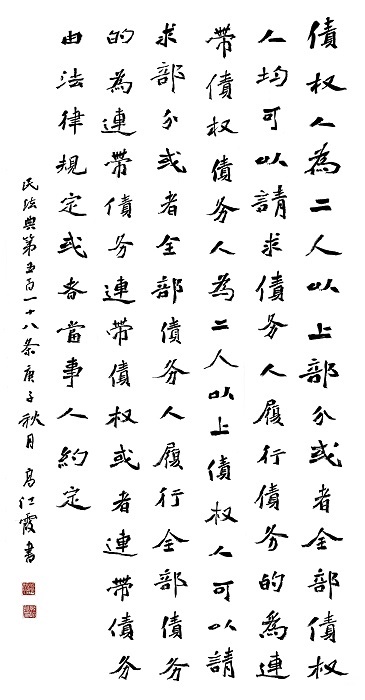 債权人為二人以上部分或者全部債权
人均可以請求債务人履行債务的為連
帶債权債务人為二人以上債权人可以請
求部分或者全部債务人履行全部債务
的為連帶債务連帶債权或者連帶債务
由法律規定或者當事人約定
民法典第五百一十八条庚子秋月高红霞書